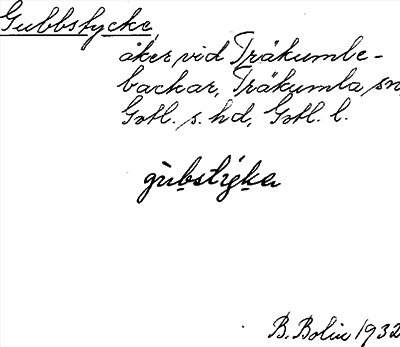 Gubbstycke,
åker vid Träkumbe-
backar, Träkumla sn,
Gotl. s. hd, Gotl. l.
gubstyka
B. Bolin 1932